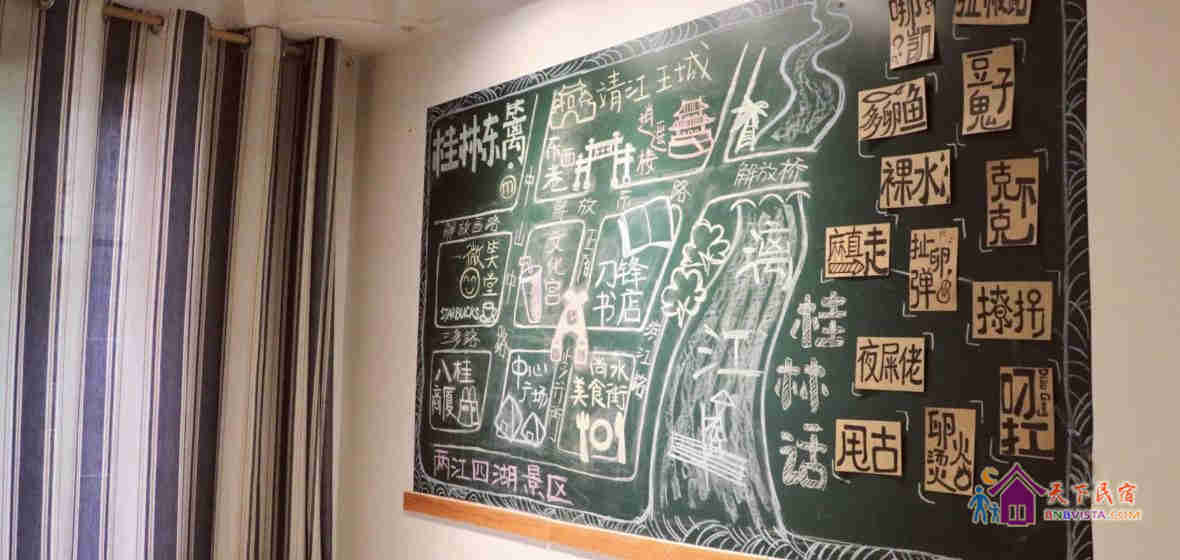 桂林东篱
靖江王城
东西巷
逍遥楼
解放桥
解放西路
中山中路
微笑堂
STARBUCKS
文化宫
刀锋书店
滨江路
三多路
八桂商厦
中心广场
尚水美食街
两江四湖景区
漓江
桂林话
多卵鱼
豆子鬼
裸水
克不克
麻直走
扯卵弹
撩拐
夜屎佬
叨扛
甩古
卵烫火
天下民宿
BNBVISTA.COM